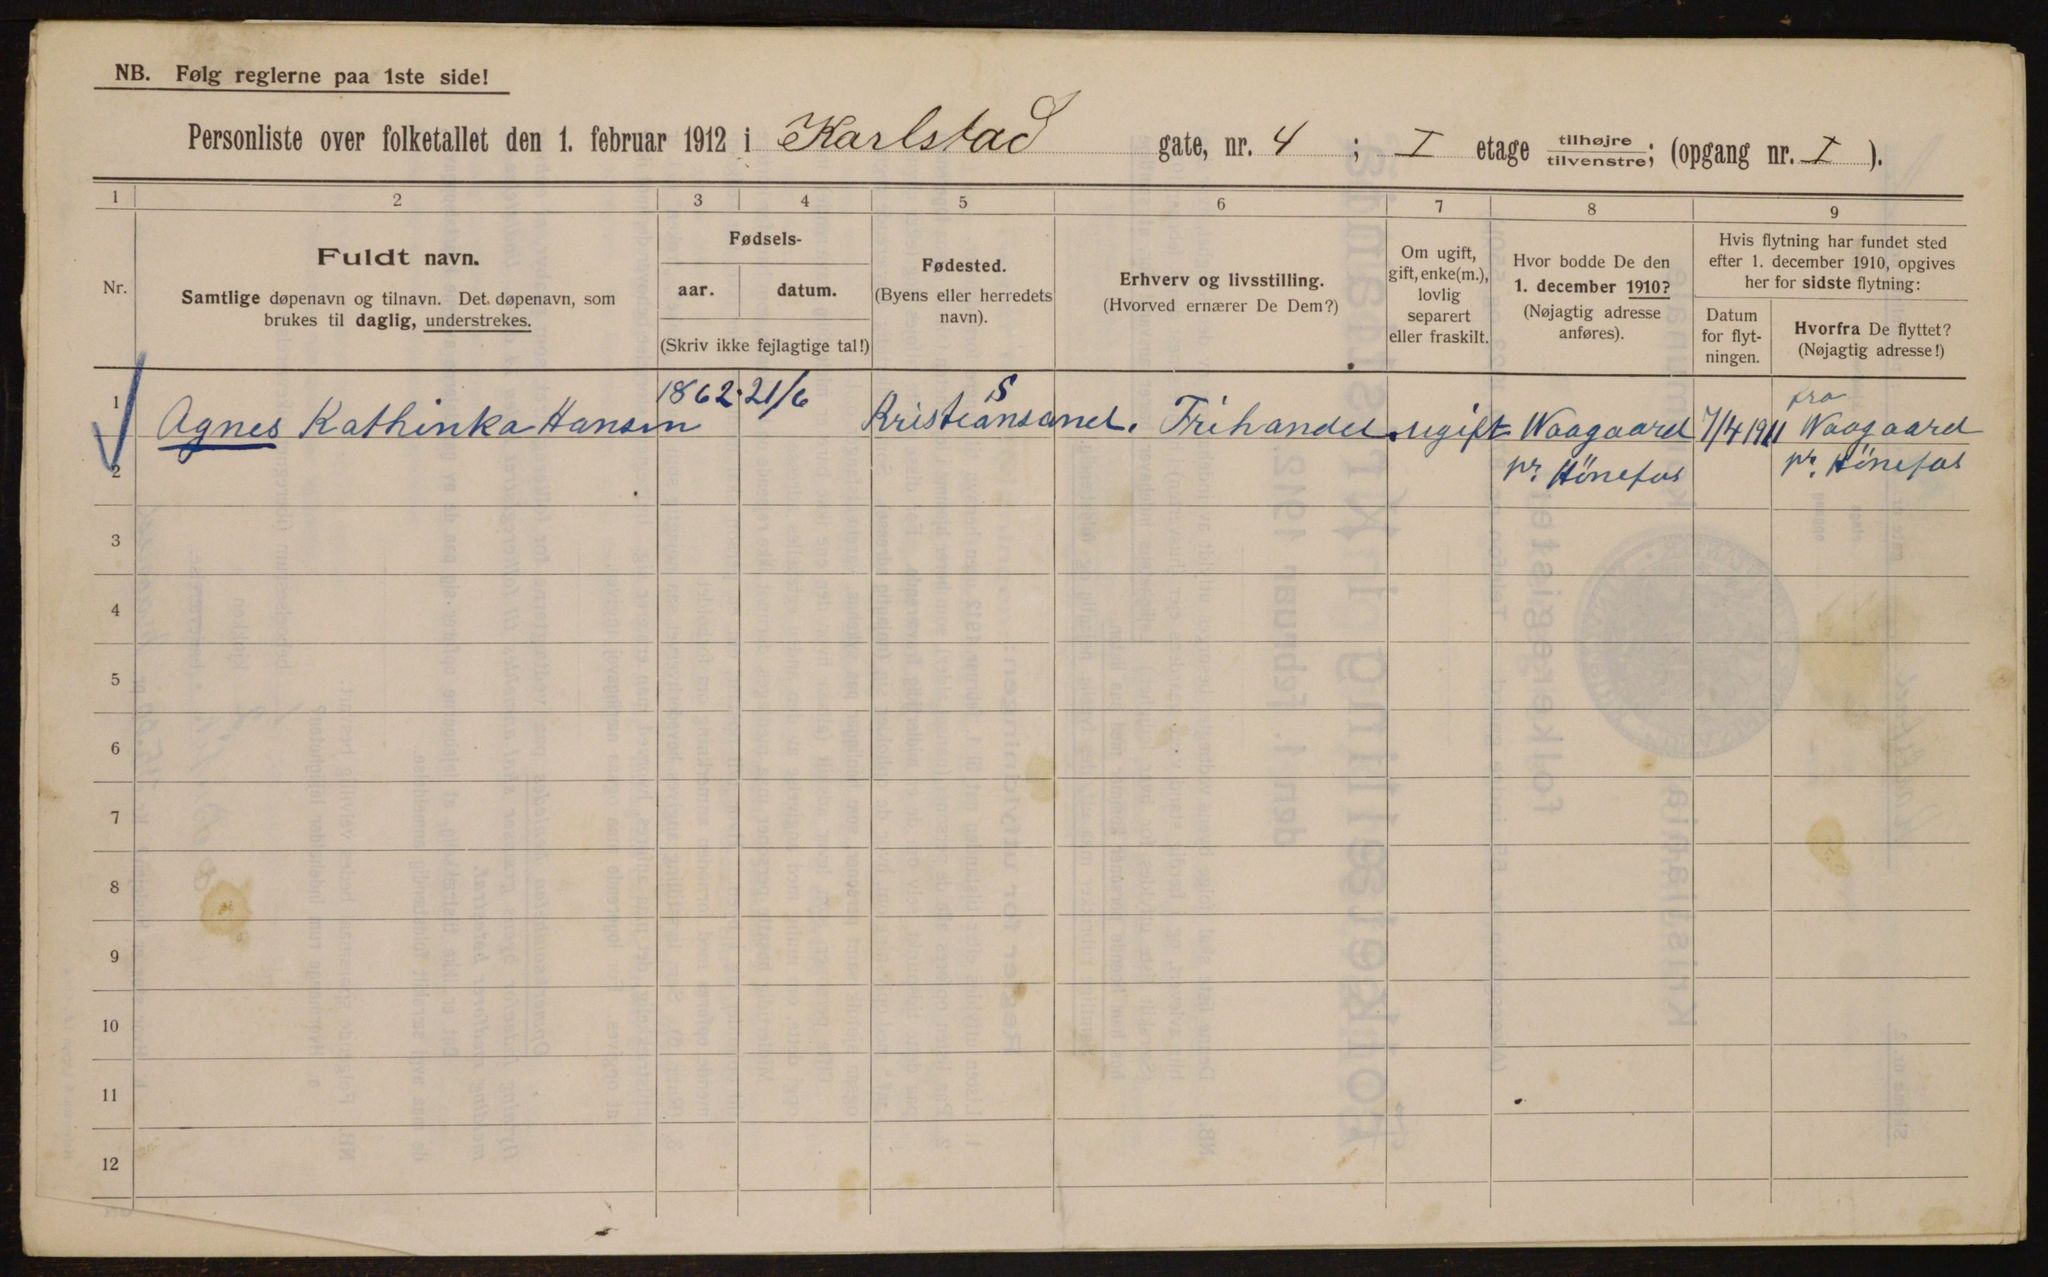 NB. Følg reglerne paa 1ste side!
Personliste over folketallet den 1. februar 1912 i Karlstad gate, nr. 4 ; I etage tilhøjre tilvenstre; (opgang nr. I ).
1 2 3 4 5 6 7 8 9
Nr.
Fuldt navn.
Samtlige døpenavn og tilnavn. Det døpenavn, som
brukes til daglig, understrekes.
Fødsels-
aar. datum.
(Skriv ikke fejlagtige tal!)
Fødested.
(Byens eller herredets
navn).
Erhverv og livsstilling.
(Hvorved ernærer De Dem?)
Om ugift,
gift, enke(m.),
lovlig
separert
eller fraskilt.
Hvor bodde De den
1. december 1910?
(Nøjagtig adresse
anføres).
Hvis flytning har fundet sted
efter 1. december 1910, opgives
her for sidste flytning:
Datum
for flyt-
ningen.
Hvorfra De flyttet?
(Nøjagtig adresse!)
1 Agnes Kathinka Hansen 1862 21/6 Kristiansand S. Frihandel ugift Waagaard 7/4 1911 fra Waagaard
2 pr. Hönefos pr. Hönefos
3
4
5
6
7
8
9
10
11
12